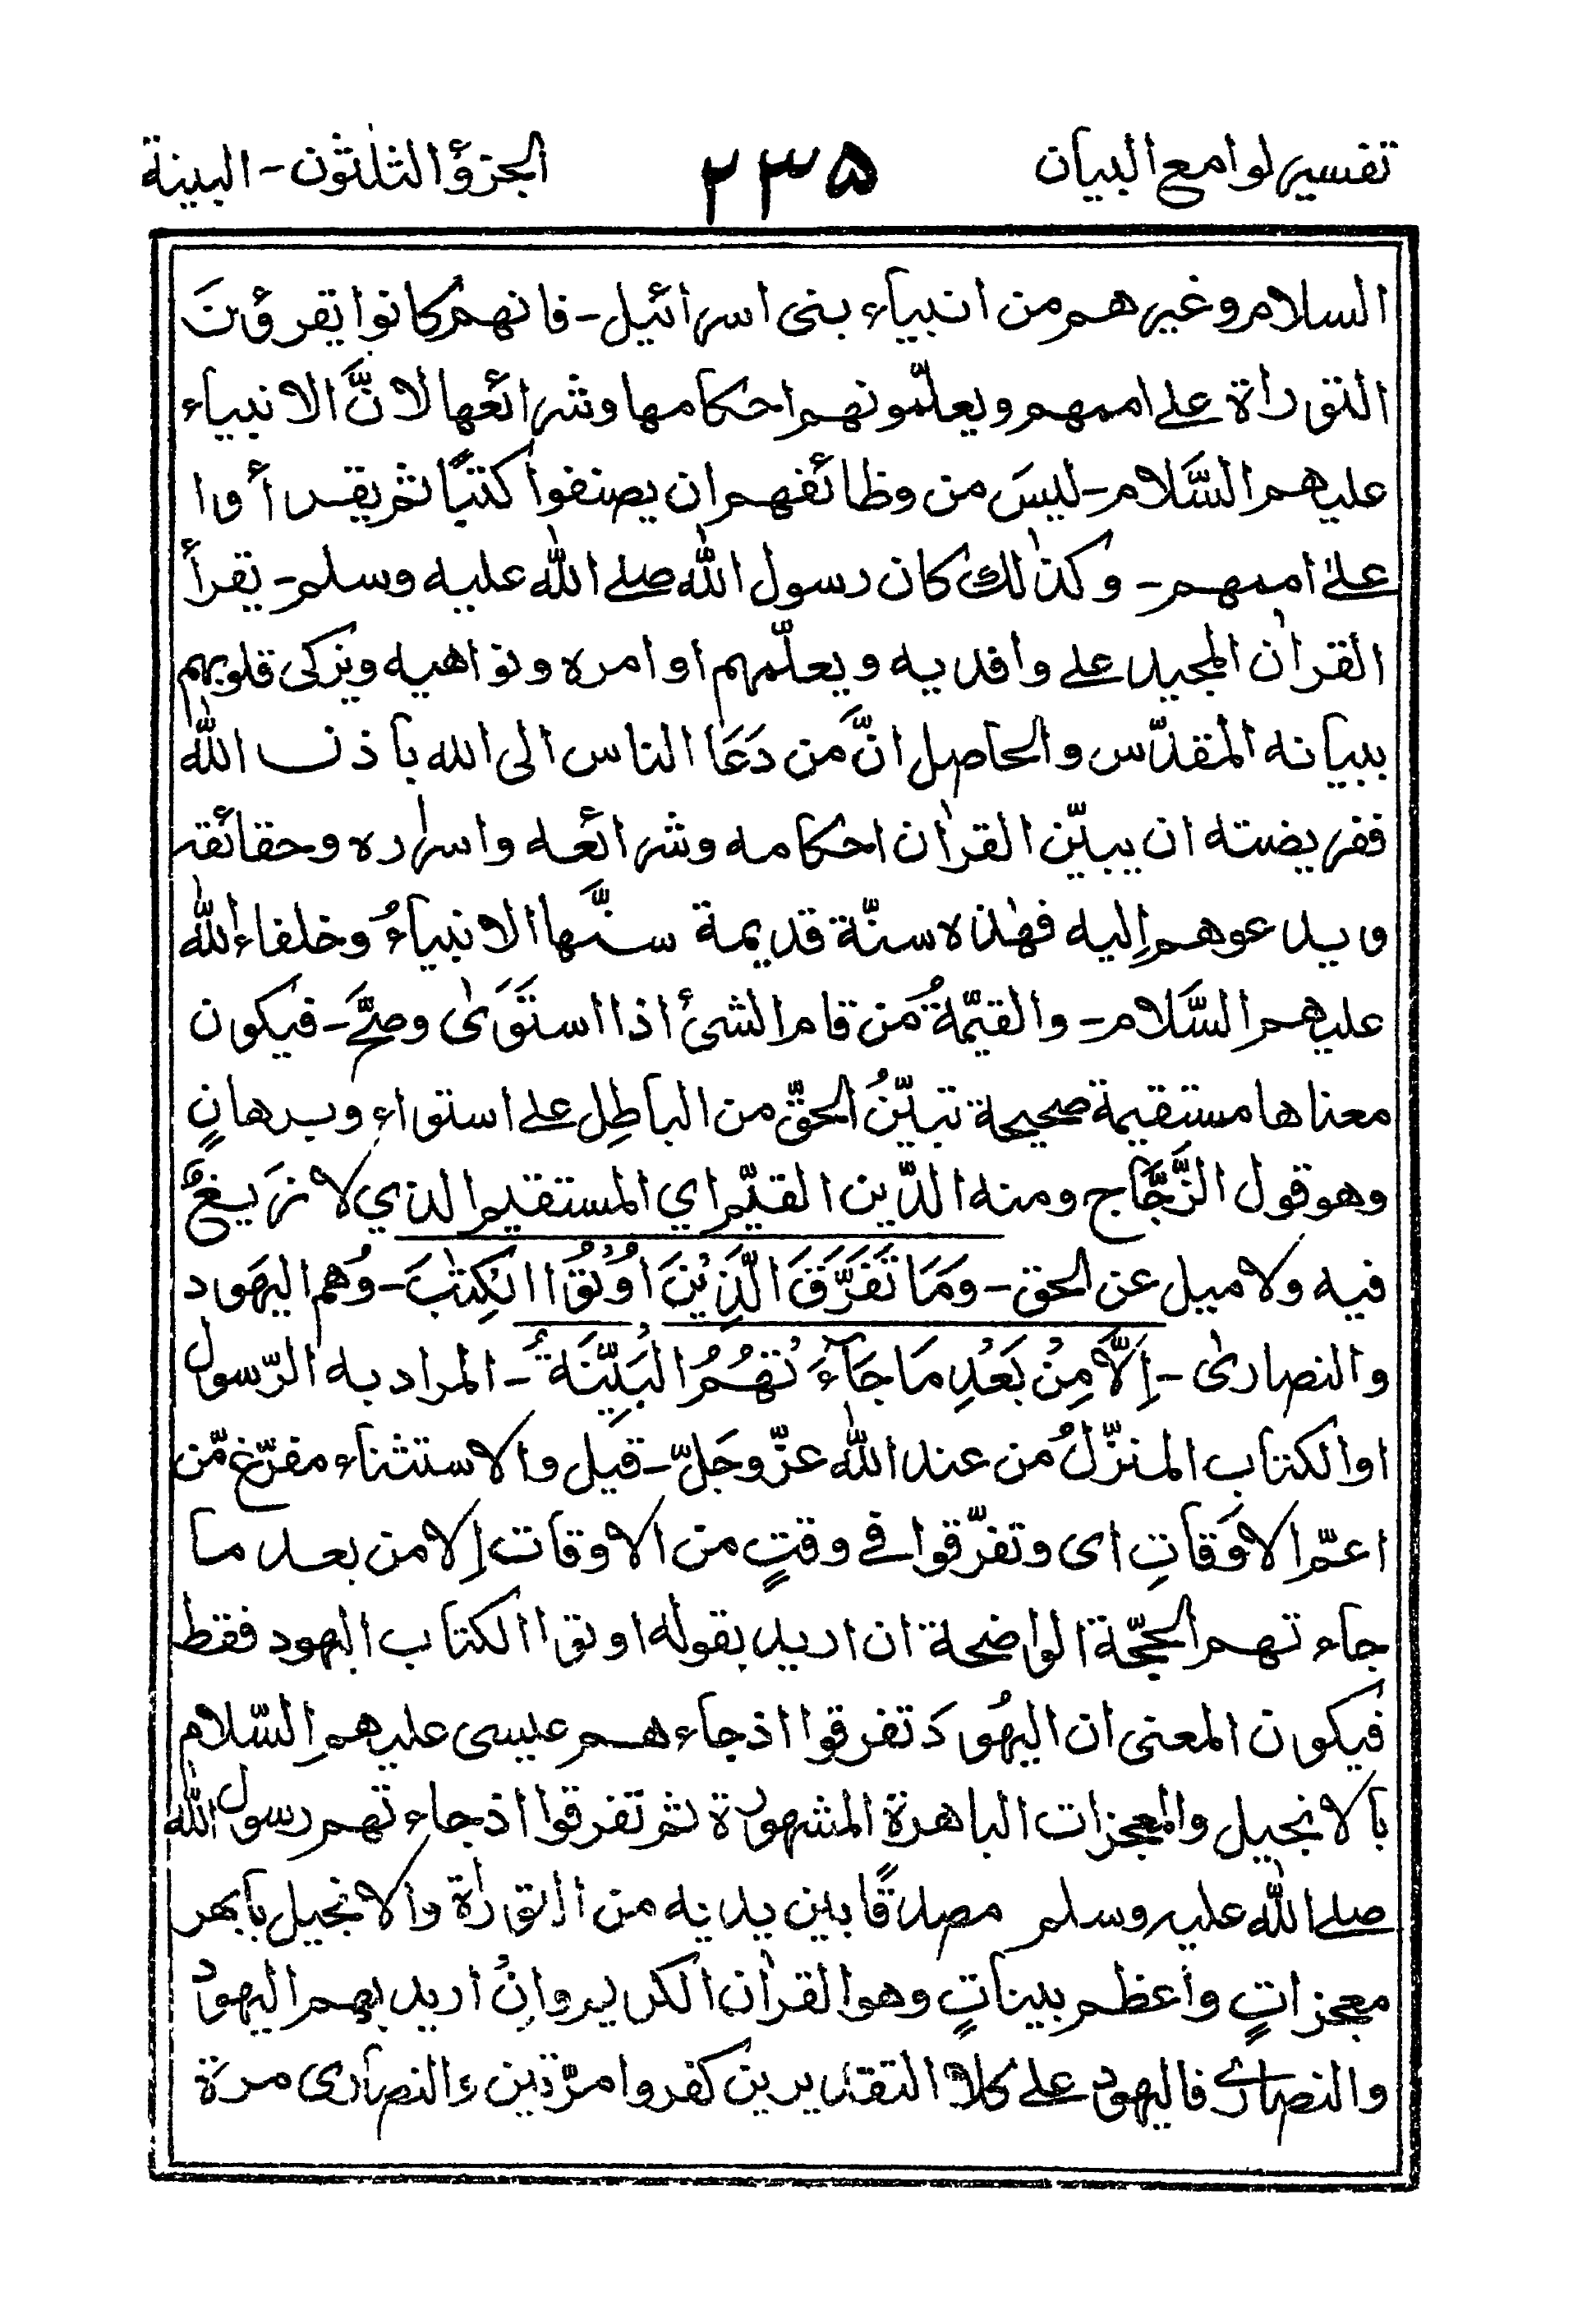 تفسير لوامع البيان ۲۳۵ الجزؤ الثلٰثون - البينة
السلام وغيرهم من انبياء بنى اسرائيل - فانهم كانوا يقرؤن
التوراة على اممهم ويعلّمونهم احكامها وشرائعها لانَّ الانبياء
عليهم السَّلام - ليسَ من وظائفهم ان يصنفوا كتبًا ثم يقرأوا
علىٰ اممهم - وكذٰلك كان رسول الله صلى الله عليه وسلم - يقرأ
القراٰن المجيد على وافديه ويعلّمهم اوامره ونواهيه ويزكى قلوبهم
ببيانه المقدّس والحاصل انَّ من دَعَا الناس الى الله باذن الله
ففريضته ان يبيّن القراٰن احكامه وشرائعه واسراره وحقائقه
ويدعوهم اِليه فهٰذه سنّة قديمة سنَّها الانبياءُ وخلفاء الله
عليهم السَّلام - والقيّمةُ مَن قام الشئ اذا استَوَىٰ وصحَّ - فيكون
معناها مستقيمة صحيحة تبيّنُ الحقّ من الباطِل على استواء وبرهانٍ
وهو قول الزَّجَّاج ومنه الدّين القيّم اي المستقيم الذي لا زَيغٌ
فيه ولا ميل عن الحق - وَمَا تَفَرَّقَ الَّذِيْنَ اُوْتُوا الْكِتٰبَ - وَهُم اليهَود
والنصارىٰ - اِلَّا مِنْ بَعْدِ مَا جَآءَتْهُمُ الْبَيِّنَةُ - المراد به الرّسول
او الكتاب المنزّلُ من عند الله عزّ وجَلّ - قيل والاستثناء مفرّغ مّن
اعمّ الاوَقاتِ اى وتفرّقوا فى وقتٍ من الاوقات اِلا من بعد ما
جاءتهم الحجّة الواضحة ان اريد بقوله اوتوا الكتاب اليهود فقط
فيكون المعنى ان اليهُودَ تفرقوا اذ جاءهم عيسى عليهم السّلام
بالانجيل والمعجزات الباهرة المشهورة ثم تفرقوا اذ جاءتهم رسول الله
صلى الله عليه وسلم مصدقًا بين يديه من التوراٰة والانجيل بابهر
معجزاتٍ واعظم بيناتٍ وهو القراٰن الكريم واِنْ اريد بهم اليهود
والنصارىٰ فاليهود على كلا التقديرين كفروا مرّتين والنصارى مرة